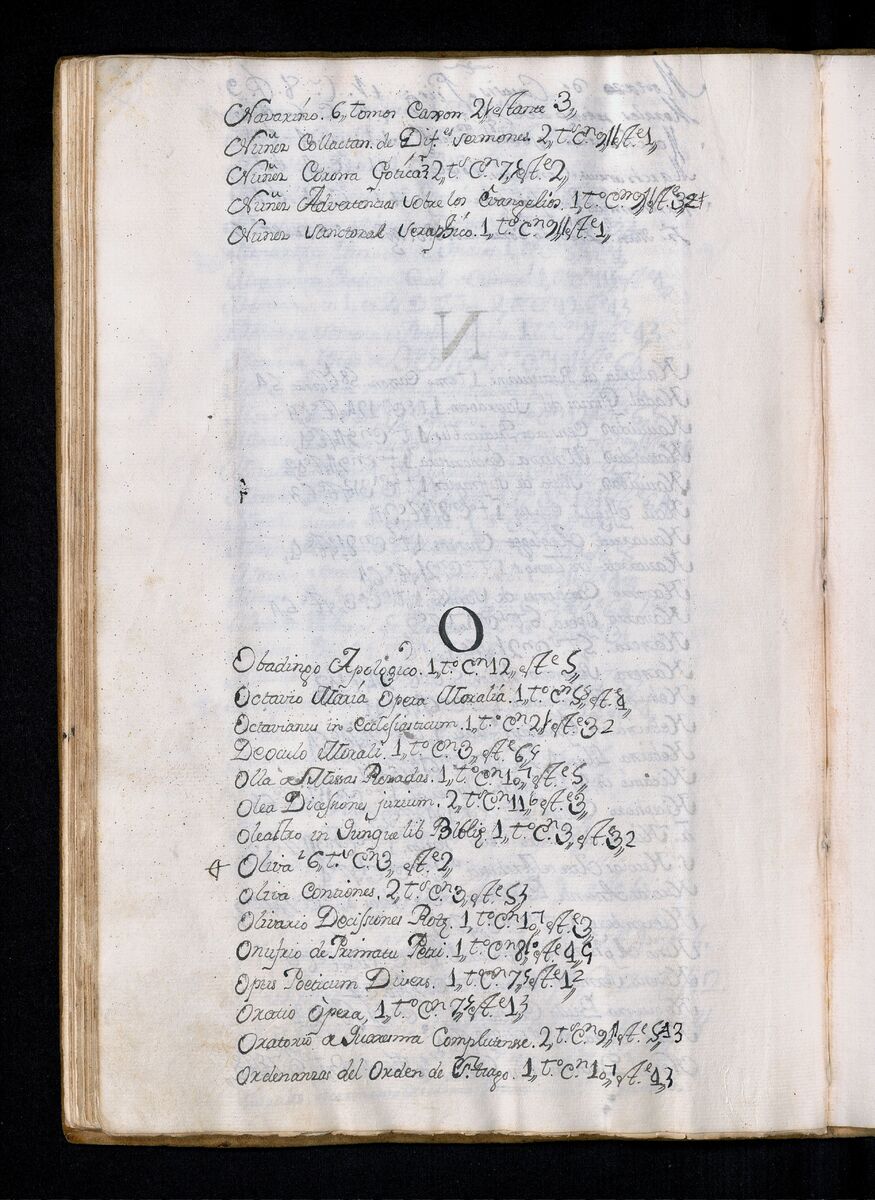 Navarino. 6,, tomos Caxon 21 estante 3,,
Nuñez Collactan. de Dif.es sermones. 2,, t.s C.n 9,, est.e 1,,
Nuñez Corona Gotica 2,, t.s C.n 7,, est.e 2,,
Nuñez Advertencias sobre los Evangelios. 1,, t.o C.n 9,, est.e
Nuñez Sanctoral seraphico. 1,, t.o C.n 9,, est.e 1,,
O
Obadingo Apologico. 1,, t.o C.n 12,, est.e 5,,
Octavio Maria Opera Moralia. 1,, t.o C.n est.e
Octavianus in ecclesiasticum. 1,, t.o C.n 21 est.e 32
De oculo Morali. 1,, t.o C.n 3,, est.e
Olla de Missas Rezadas. 1,, t.o C.n 10,, est.e 5,,
Olea Dicesiones jurium. 2,, t.s C.n 11,, est.e 3,,
Oleastro in quinque lib Biblię. 1,, t.o C.n 3,, est.e 3,, 2
Oliva 6,, t.s C.n 3,, est.e 2,,
Oliva Contiones. 2,, t.s C.n 3,, est.e
Olivario Decissiones Rotę. 1,, t.o C.n 10,, est.e 3
Onufrio de Primatu Petri. 1,, t.o C.n 8,, est.e
Opus Poeticum Divers. 1,, t.o C.n 7,, est.e 1,, 2
Oratio Òpera,, 1,, t.o C.n 7,, est.e 1,,
Oratorio de Quaresma Complutense. 2,, t.s C.n 9,, est.e
Ordenanzas del Orden de S.ntiago. 1,, t.o C.n 10,, est.e